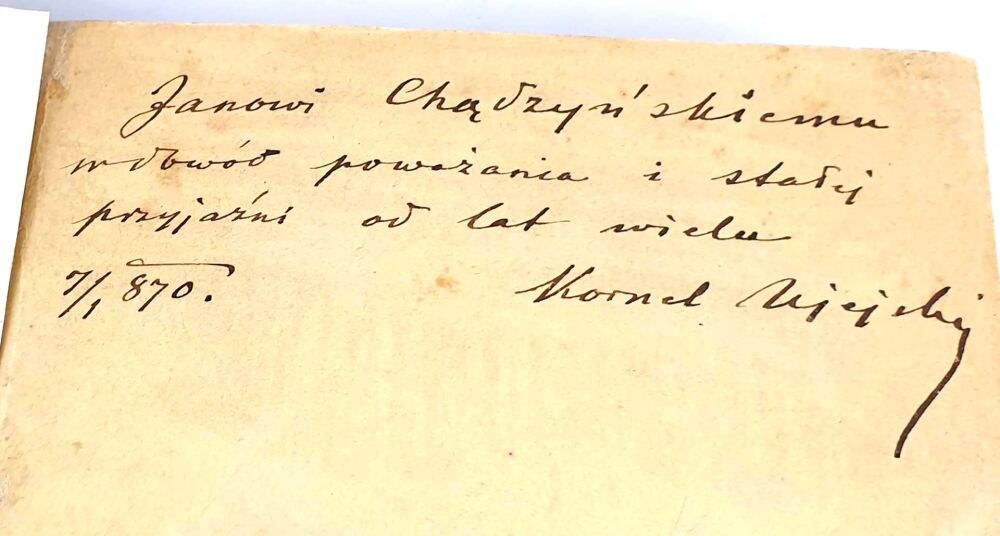 Janowi Chądzyńskiemu
w dowód poważania i stałej
przyjaźni od lat wielu
7/1 870. Kornel Ujejski